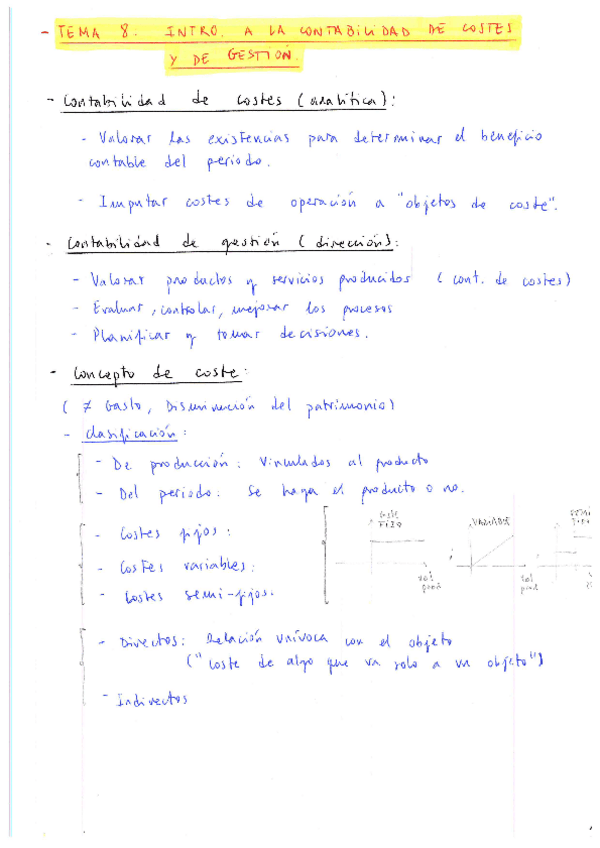 - TEMA 8. INTRO. A LA CONTABILIDAD DE COSTES
Y DE GESTIÓN.
- Contabilidad de costes (analítica):
- Valorar las existencias para determinar el beneficio
contable del periodo.
- Imputar costes de operación a "objetos de coste".
- Contabilidad de gestión (dirección):
- Valorar productos y servicios producidos (cont. de costes)
- Evaluar, controlar, mejorar los procesos
- Planificar y tomar decisiones.
- Concepto de coste:
( ≠ Gasto, Disminución del patrimonio)
- Clasificación:
- De producción: Vinculados al producto
- Del periodo: Se haga el producto o no.
- Costes fijos:
- Costes variables:
- Costes semi-fijos:
COSTE
FIJO
VARIABLE
SEMI
FIJO
vol
prod
vol
prod
- Directos: Relación unívoca con el objeto
("coste de algo que va solo a un objeto")
- Indirectos